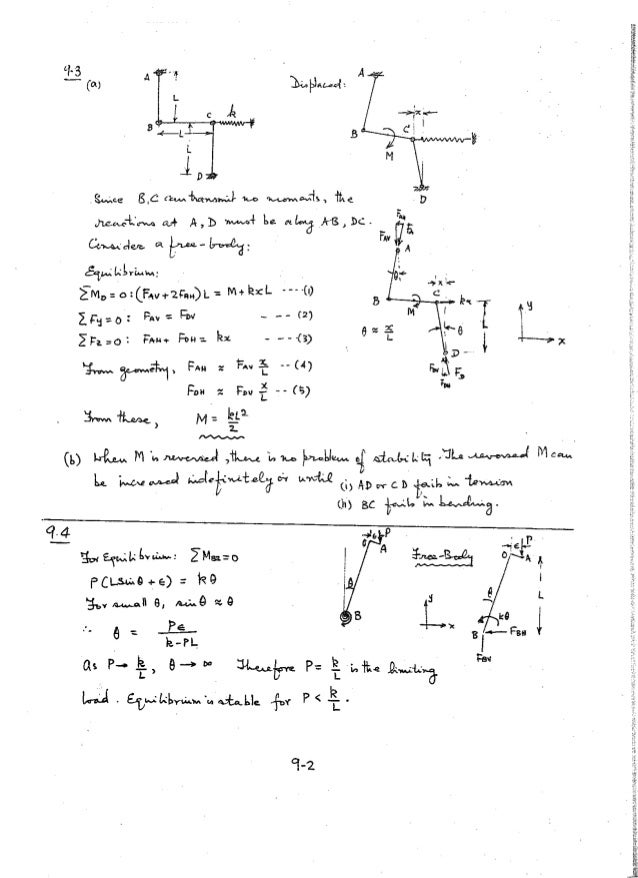 9.3
(a)
Displaced:
A
L
B
C
k
L
L
D
A
B
C
x
M
D
Since B, C can transmit no moments, the
reactions at A, D must be along AB, DC.
Consider a free-body:
Equilibrium:
ΣMD = 0 : (FAV + 2FAH) L = M + kxL ---- (1)
ΣFy = 0 : FAV = FDV --- (2)
ΣFz = 0 : FAH + FDH = kx --- (3)
From geometry, FAH ≈ FAV x/L -- (4)
FDH ≈ FDV x/L -- (5)
From these, M = kL²/2
FAH
FAV
FA
A
θ
B
M
C
x
kx
θ ≈ x/L
θ
L
D
FDV
FD
FDH
y
x
(b) When M is reversed, there is no problem of stability. The reversed M can
be increased indefinitely or until (i) AD or CD fails in tension
(ii) BC fails in bending.
9.4
For Equilibrium: ΣMBz = 0
P(L sin θ + ε) = kθ
For small θ, sin θ ≈ θ
∴ θ = Pε/k-PL
As P → k/L, θ → ∞ Therefore P = k/L is the limiting
load. Equilibrium is stable for P < k/L.
ε
P
O
A
θ
B
y
x
Free-Body
ε
P
O
A
θ
L
kθ
B
FBH
FBV
9-2